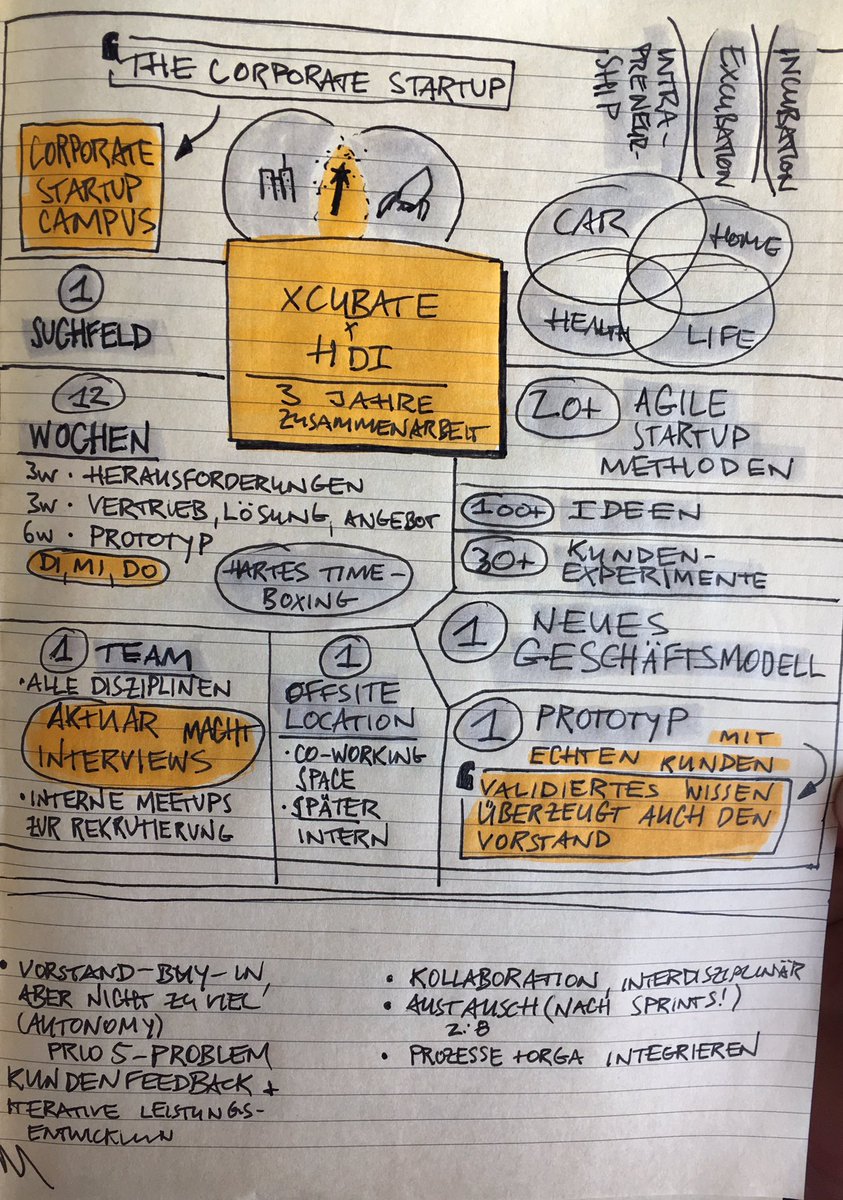 THE CORPORATE STARTUP
CORPORATE
STARTUP
CAMPUS
INTRA-
PRENEUR-
SHIP
EXCUBATION
INCUBATION
CAR
HOME
HEALTH
LIFE
XCUBATE
x
HDI
3 JAHRE
ZUSAMMENARBEIT
1
SUCHFELD
12
WOCHEN
3W · HERAUSFORDERUNGEN
3W · VERTRIEB, LÖSUNG, ANGEBOT
6W · PROTOTYP
DI, MI, DO
HARTES TIME-
BOXING
20+ AGILE
STARTUP
METHODEN
100+ IDEEN
30+ KUNDEN-
EXPERIMENTE
1 NEUES
GESCHÄFTSMODELL
1 TEAM
· ALLE DISZIPLINEN
AKTUAR MACHT
INTERVIEWS
· INTERNE MEETUPS
ZUR REKRUTIERUNG
1
OFFSITE
LOCATION
· CO-WORKING
SPACE
· SPÄTER
INTERN
1 PROTOTYP MIT
ECHTEN KUNDEN
VALIDIERTES WISSEN
ÜBERZEUGT AUCH DEN
VORSTAND
· VORSTAND-BUY-IN,
ABER NICHT ZU VIEL
(AUTONOMY)
PRIO 5-PROBLEM
KUNDENFEEDBACK +
ITERATIVE LEISTUNGS-
ENTWICKLUNG
· KOLLABORATION, INTERDISZIPLINÄR
· AUSTAUSCH (NACH SPRINTS!)
· PROZESSE + ORGA INTEGRIEREN